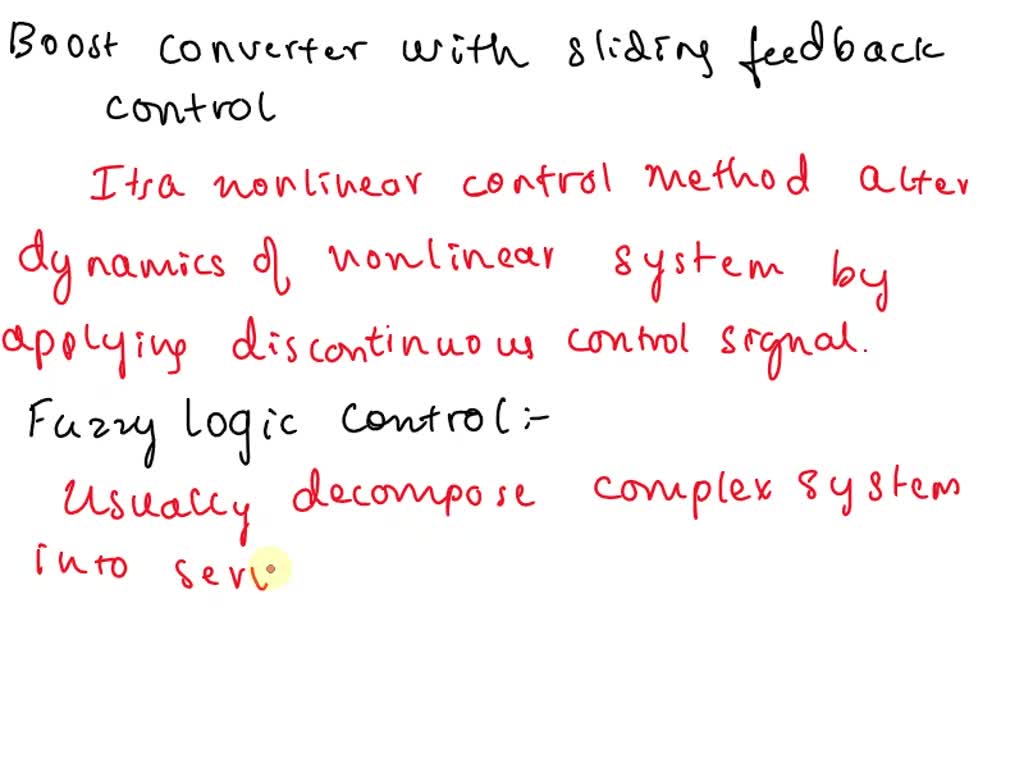 Boost converter with sliding feedback
control
Itsa nonlinear control method alter
dynamics of nonlinear system by
applying discontinuous control signal.
Fuzzy Logic Control:-
Usually decompose complex system
into serv